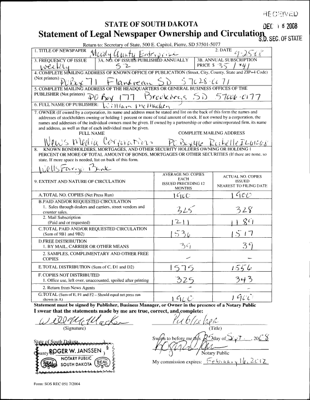 RECEIVED
DEC 18 2008
S.D. SEC. OF STATE
STATE OF SOUTH DAKOTA
Statement of Legal Newspaper Ownership and Circulation
Return to: Secretary of State, 500 E. Capitol, Pierre, SD 57501-5077
1. TITLE OF NEWSPAPER Moody County Enterprise
2. DATE
3. FREQUENCY OF ISSUE weekly
3A. NO. OF ISSUES PUBLISHED ANNUALLY 52
3B. ANNUAL SUBSCRIPTION PRICE $
4. COMPLETE MAILING ADDRESS OF KNOWN OFFICE OF PUBLICATION (Street, City, County, State and ZIP+4 Code)
(Not printers) PO Box 71 Flandreau SD 57028-0071
5. COMPLETE MAILING ADDRESS OF THE HEADQUARTERS OR GENERAL BUSINESS OFFICES OF THE
PUBLISHERS (Not printers) PO Box 177 Brookings SD
6. FULL NAME OF PUBLISHER: William McMacken
7. OWNER (If owned by a corporation, its name and address must be stated and also on the back of this form the names and
addresses of stockholders owning or holding 1 percent or more of total amount of stock. If not owned by a corporation, the
names and addresses of the individual owners must be given. If owned by a partnership or other unincorporated firm, its name
and address, as well as that of each individual must be given.
FULL NAME
COMPLETE MAILING ADDRESS
News Media Corporation
PO Box Rochelle IL
8. KNOWN BONDHOLDERS, MORTGAGEES, AND OTHER SECURITY HOLDERS OWNING OR HOLDING 1
PERCENT OR MORE OF TOTAL AMOUNT OF BONDS, MORTGAGES OR OTHER SECURITIES (If there are none, so
state. If more space is needed, list on back of this form.
Wells Fargo Bank
9. EXTENT AND NATURE OF CIRCULATION
AVERAGE NO. COPIES EACH ISSUED PRECEDING 12 MONTHS
ACTUAL NO. COPIES ISSUED NEAREST TO FILING DATE
A. TOTAL NO. COPIES (Net Press Run) 1900 1900
B. PAID AND/OR REQUESTED CIRCULATION
1. Sales through dealers and carriers, street vendors and counter sales. 325 328
2. Mail Subscription
(Paid and or requested) 1211 1189
C. TOTAL PAID AND/OR REQUESTED CIRCULATION
(Sum of 9B1 and 9B2) 1536 1517
D. FREE DISTRIBUTION
1. BY MAIL, CARRIER OR OTHER MEANS 39 39
2. SAMPLES, COMPLIMENTARY AND OTHER FREE COPIES - -
E. TOTAL DISTRIBUTION (Sum of C, D1 and D2) 1575 1556
F. COPIES NOT DISTRIBUTED
1. Office use, left over, unaccounted, spoiled after printing 325 343
2. Return from News Agents
G. TOTAL (Sum of E, F1 and F2 - Should equal net press run shown in A) 1900 1900
Statement must be signed by Publisher, Business Manager, or Owner in the presence of a Notary Public
I swear that the statements made by me are true, correct, and complete:
Publisher
(Signature)
(Title)
State of South Dakota
ROGER W. JANSSEN
NOTARY PUBLIC
SOUTH DAKOTA
SEAL
Notary Public
My commission expires: February 16, 2012